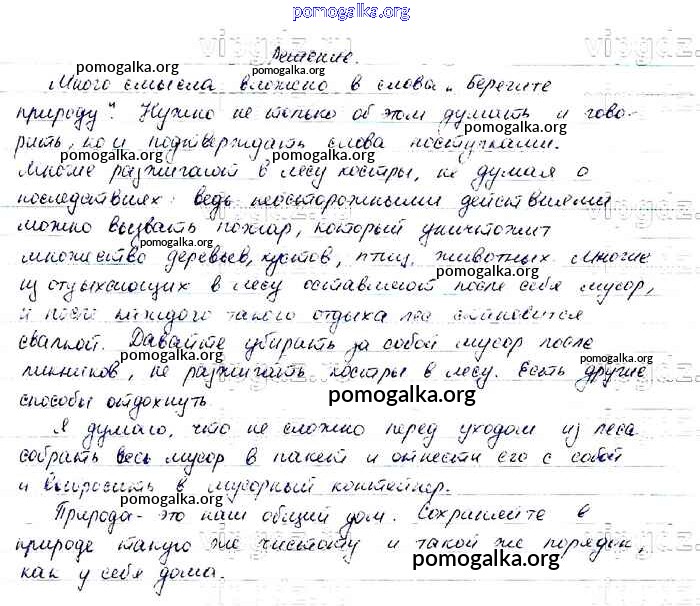 pomogalka.org
Решение.
Много смысла вложено в слова „Берегите
природу". Нужно не только об этом думать и гово-
рить, но и подтверждать слова поступками.
Многие разжигают в лесу костры, не думая о
последствиях: ведь неосторожными действиями
можно вызвать пожар, который уничтожит
множество деревьев, кустов, птиц, животных. Многие
из отдыхающих в лесу оставляют после себя мусор,
и после каждого такого отдыха лес становится
свалкой. Давайте убирать за собой мусор после
пикников, не разжигать костры в лесу. Есть другие
способы отдохнуть.
Я думаю, что не сложно перед уходом из леса
собрать весь мусор в пакет и отнести его с собой
и выбросить в мусорный контейнер.
Природа - это наш общий дом. Сохраняйте в
природе такую же чистоту и такой же порядок,
как у себя дома.